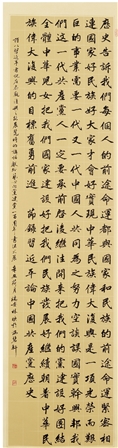 歷史告訴我們每個人的前途命運都與國家和民族的前途命運緊密相
連國家好民族好大家才會好實現中華民族偉大復興是一項光榮而艱
巨的事業需要一代又一代中國人共同為之努力空談誤國實幹興邦我
們這一代共產黨人一定要承前啟後繼往開來把我們的黨建設好團結
全體中華兒女把我們國家建設好把我們民族發展好繼續朝着中華民
族偉大復興的目標奮勇前進 節錄習近平論中國共產黨歷史